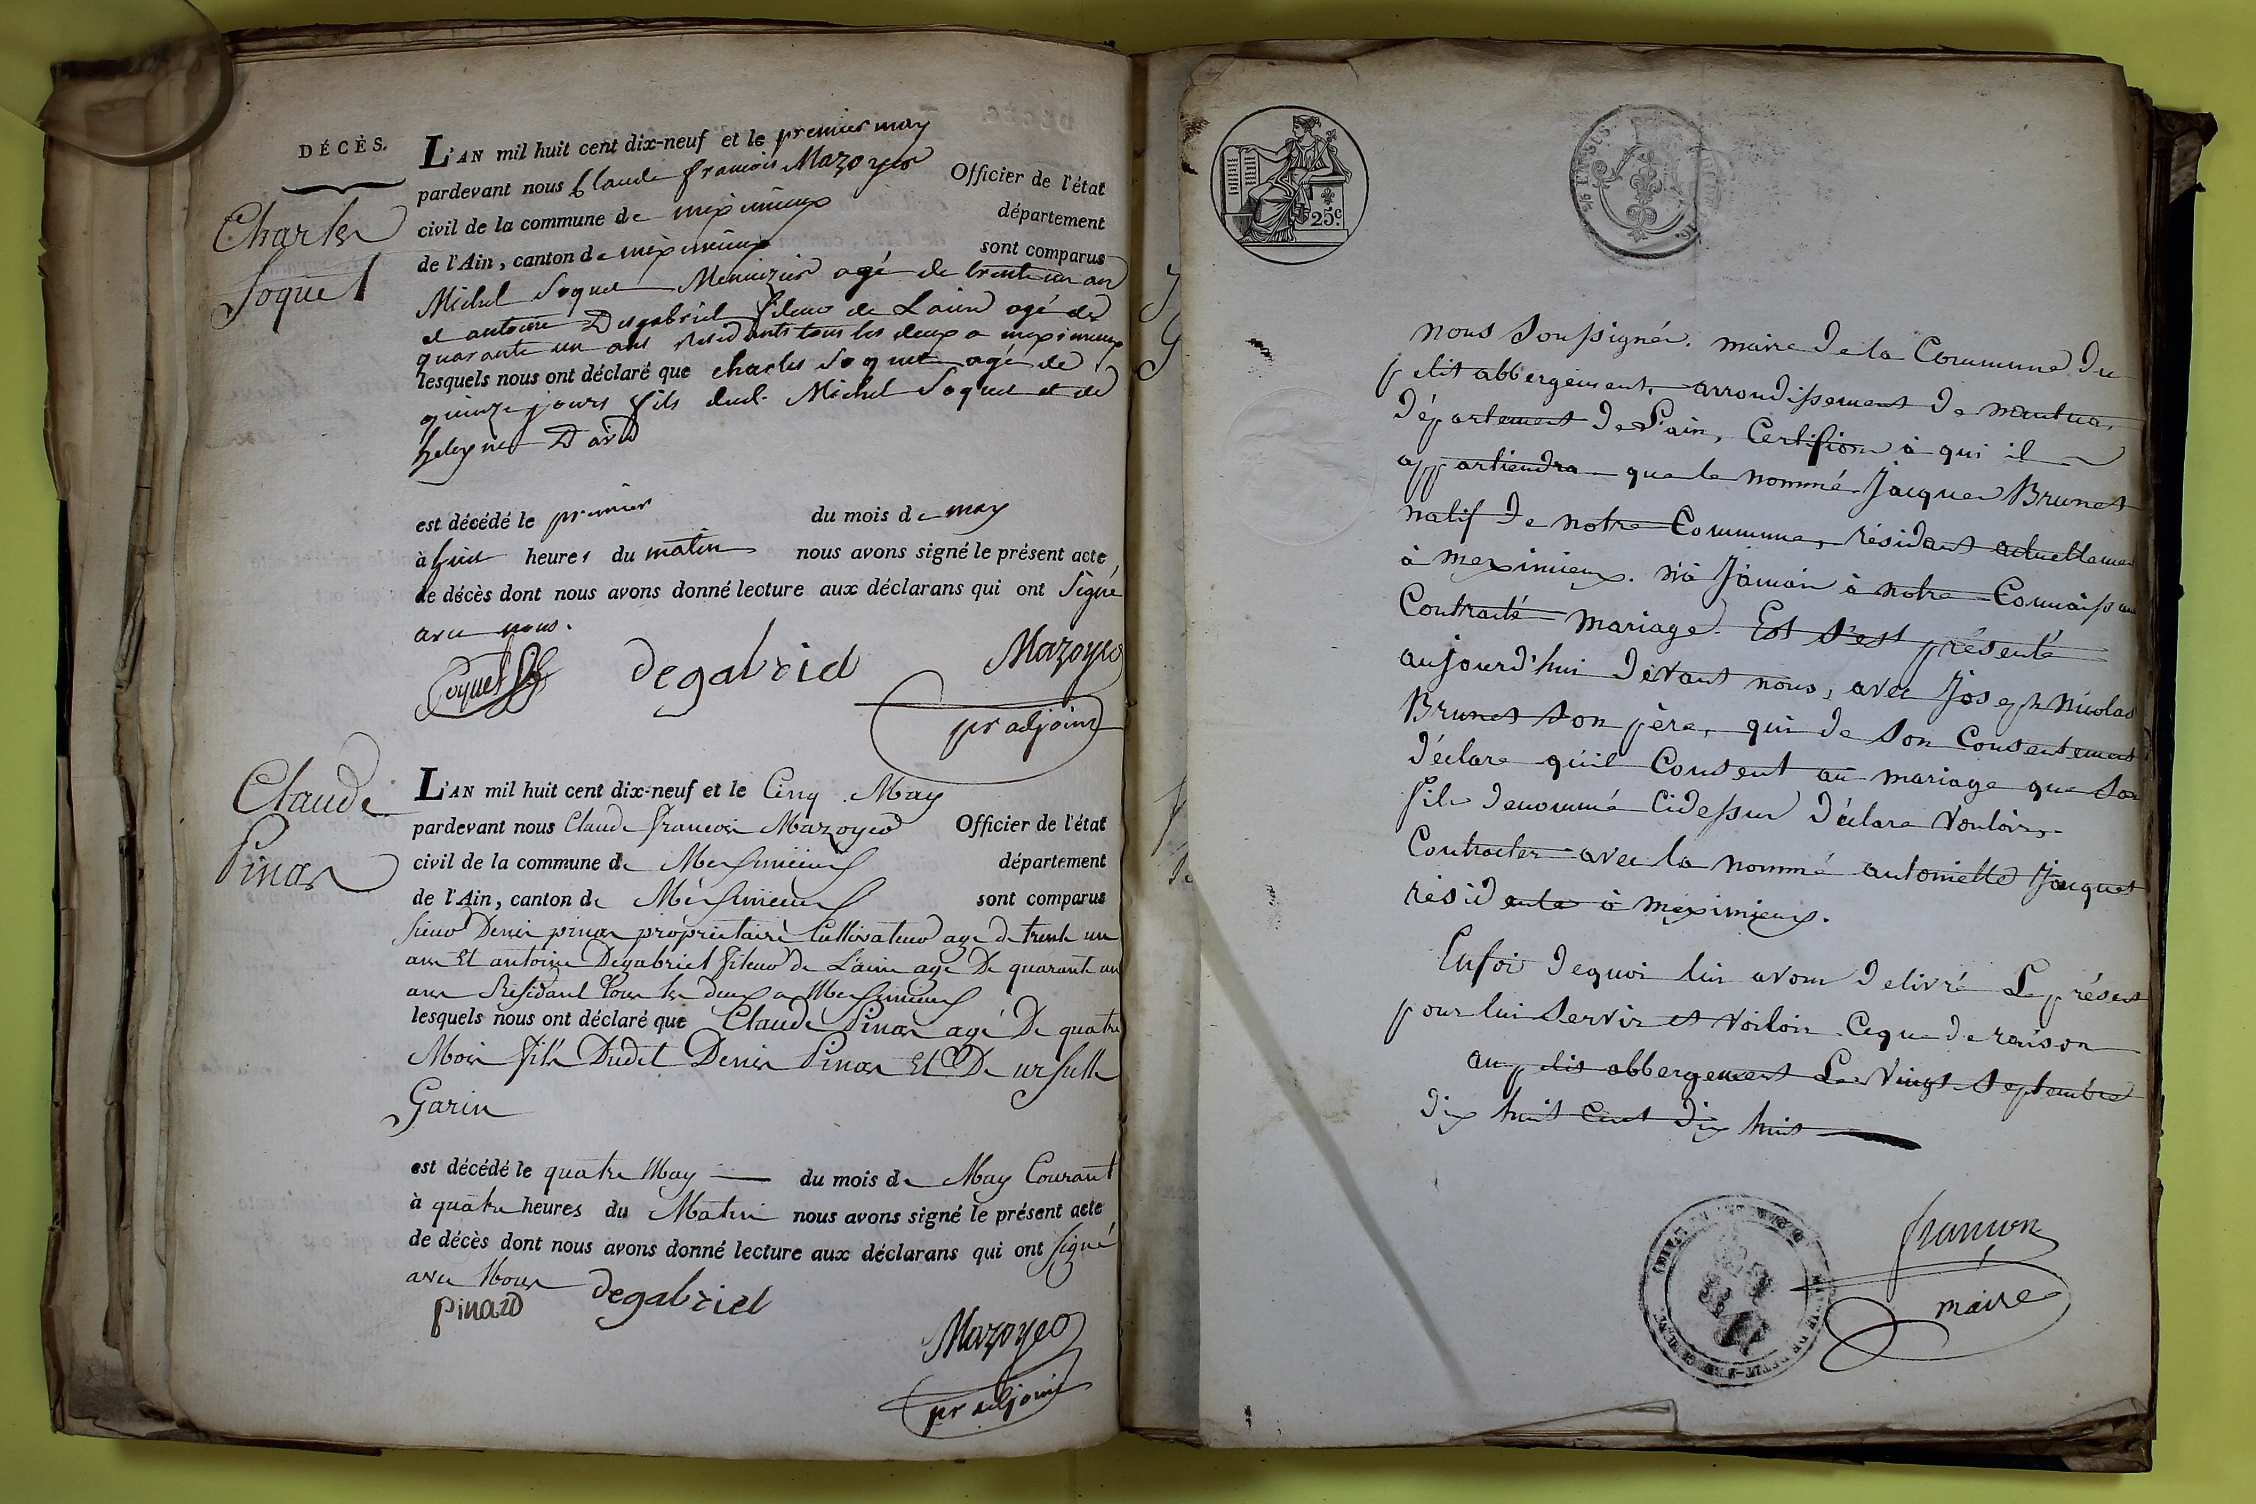 DÉCÈS.
Charles
Soquet
L'AN mil huit cent dix-neuf et le premier may
pardevant nous Claude françois Mazoyer Officier de l'état
civil de la commune de meximieux département
de l'Ain, canton de meximieux sont comparus
Michel Soquet Menuizier agé de trente un an
et antoine Degabriel fileur de Laine agé de
quarante un ans residants tous les deux a meximieux
lesquels nous ont déclaré que charles Soquet agé de
quinze jours fils dud. Michel Soquet et de
David
est décédé le premier du mois de may
à huit heures du matin nous avons signé le présent acte
de décès dont nous avons donné lecture aux déclarans qui ont Signé
avec nous.
Soquet degabriel Mazoyer
pr adjoint
Claude
Pinar
L'AN mil huit cent dix-neuf et le Cinq May
pardevant nous Claude francois Mazoyer Officier de l'état
civil de la commune de Meximieux département
de l'Ain, canton de Méximieux sont comparus
sieur Denis pinar propriétaire Cultivateur age de trente un
ans Et antoine Degabriel fileur de Laine age De quarante un
ans Résidant tous les deux a Meximieux
lesquels nous ont déclaré que Claude Pinar agé De quatre
Mois fils Dudit Denis Pinar Et De ursulle
Garin
est décédé le quatre May du mois de May Courant
à quatre heures du Matin nous avons signé le présent acte
de décès dont nous avons donné lecture aux déclarans qui ont signé
avec Nous
pinard degabriel
Mazoyer
pr adjoint
25c
nous Soussigné. maire de la Commune du
petit abbergement, arrondissement de mantua,
département de l'ain, Certifions à qui il
appartiendra que le nommé Jacques Brunet
natif de notre Commune, résidant actuellement
à meximieux. n'à Jamais à notre Connaissance
Contracté mariage. Est s'est présenté
aujourd'hui devant nous, avec Joseph Nicolas
Brunet Son père, qui de Son Consentement
déclare qu'il Consent au mariage que Son
fils denommé Cidessus déclare Vouloir
Contracter avec la nommé antoinette Jacquet
résidente à meximieux.
Enfoi dequoi lui avons delivré Le présent
pour lui Servir et Valoir Ceque de raison
au petit abbergement Le Vingt Septembre
dix huit Cent dix huit
francon
maire